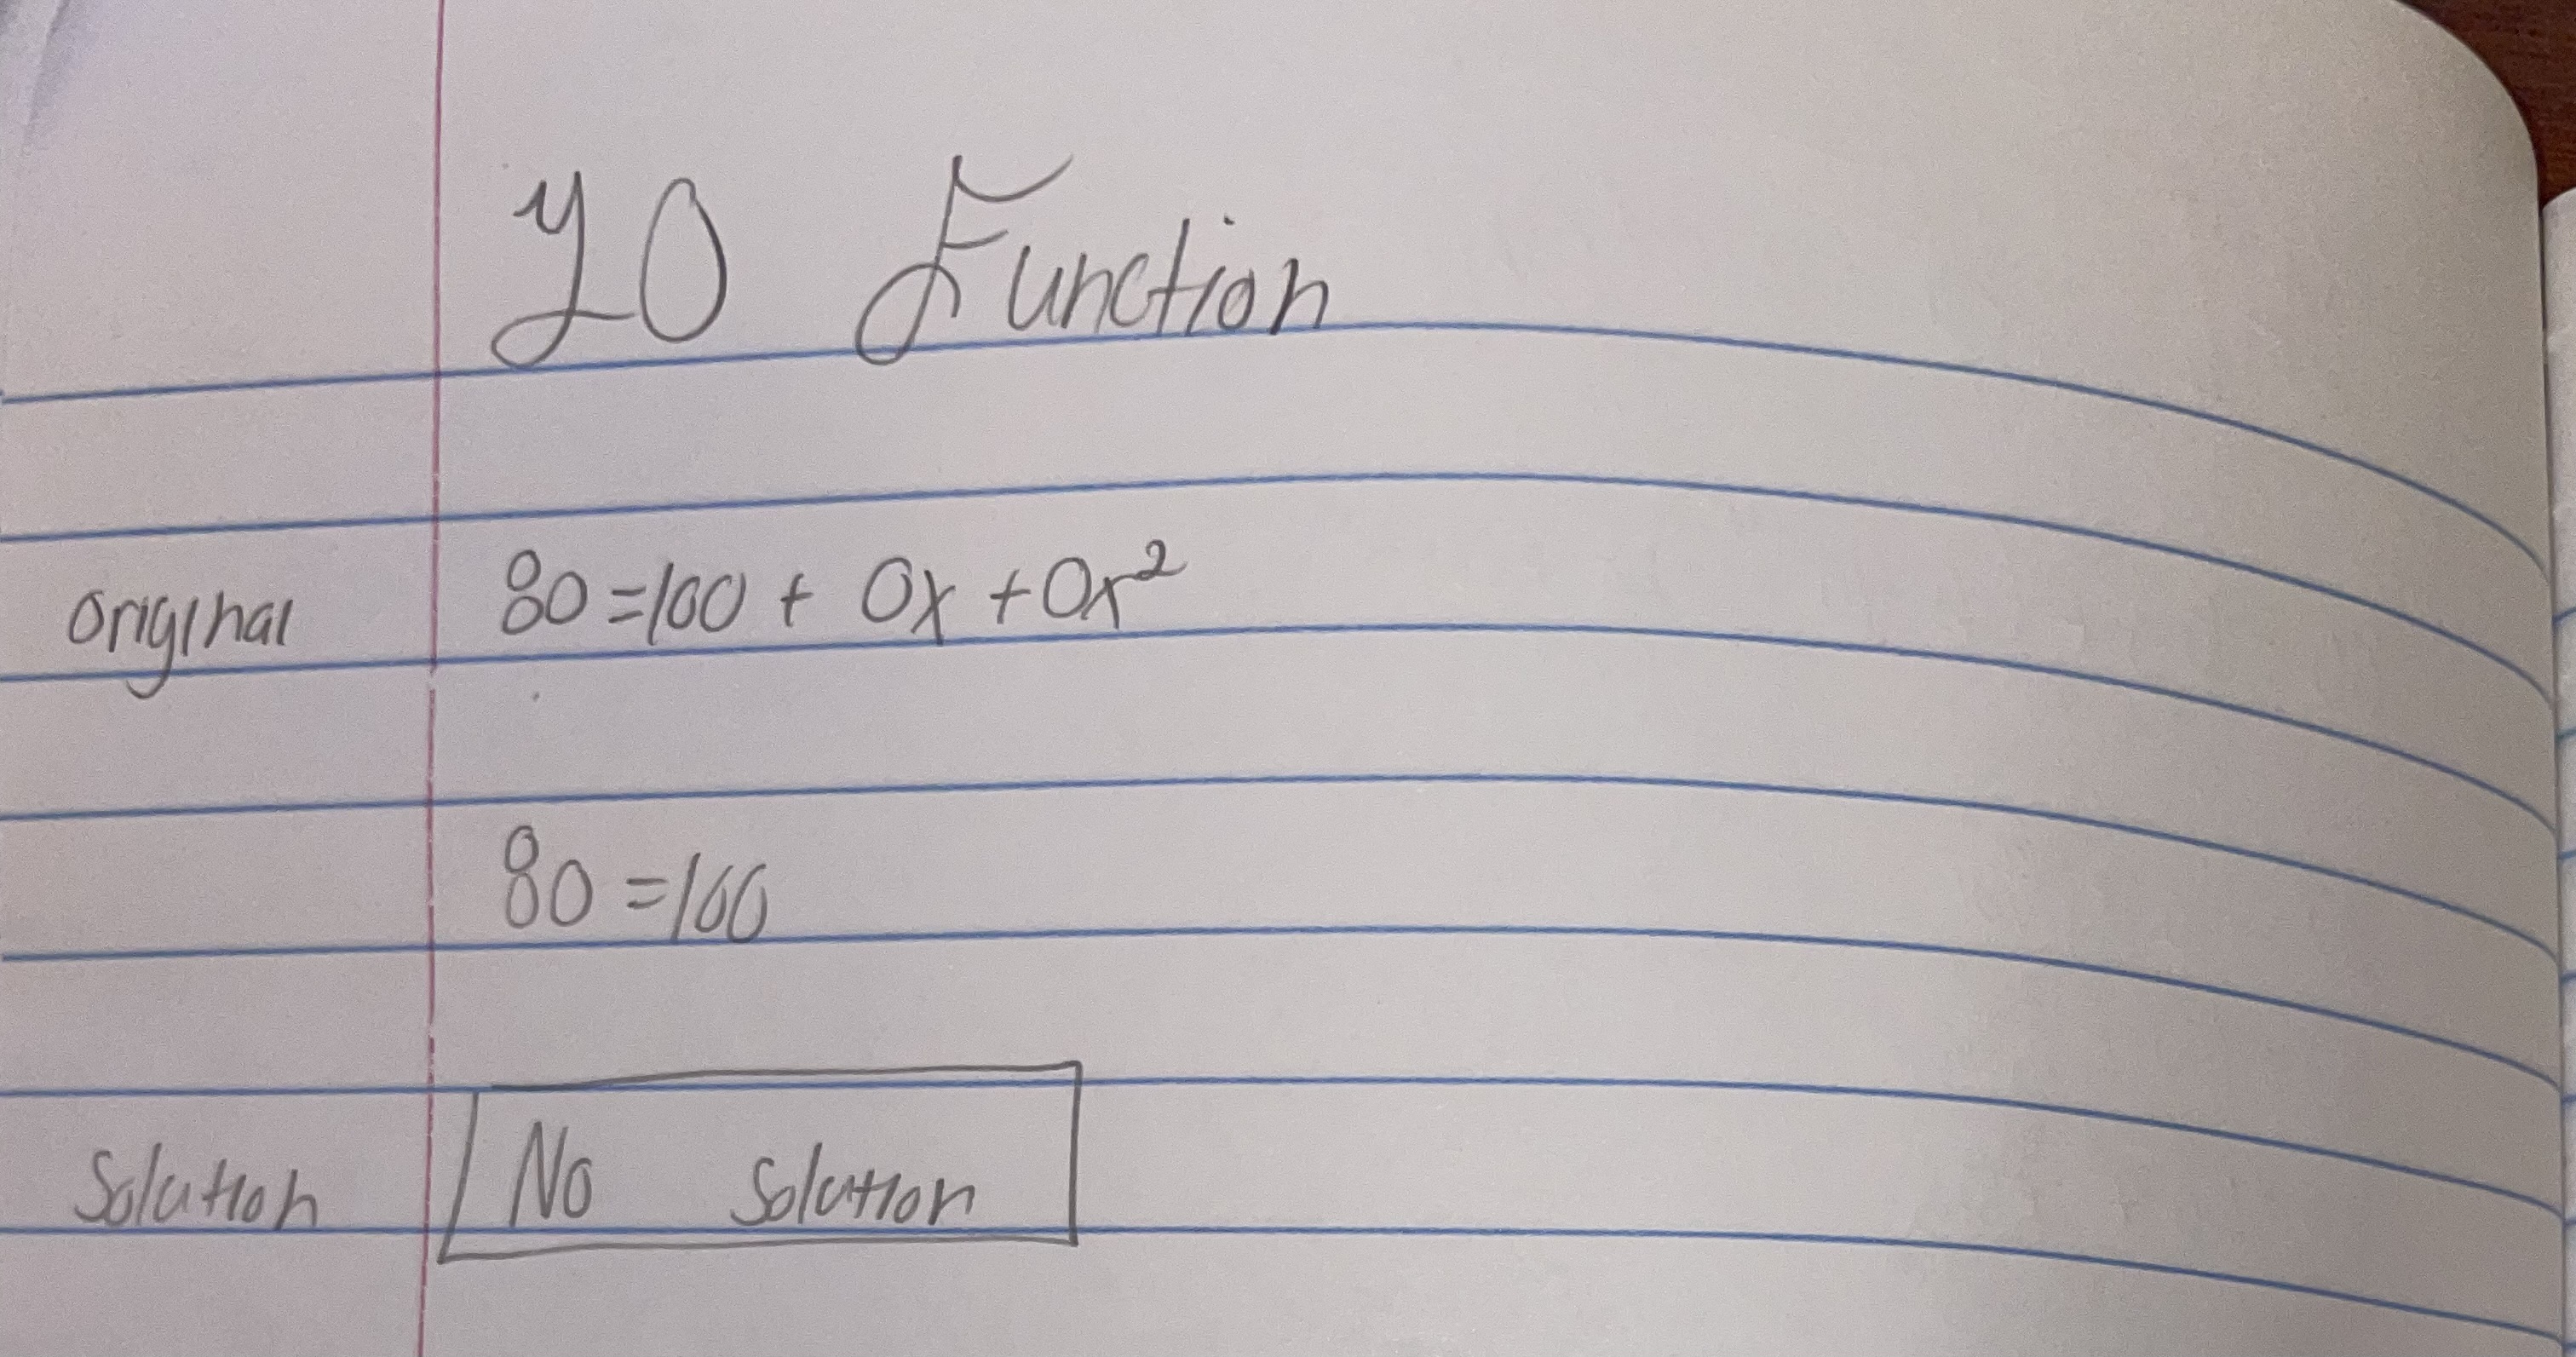 YO Function
Original 80 = 100 + 0x + 0x²
80 = 100
Solution No Solution